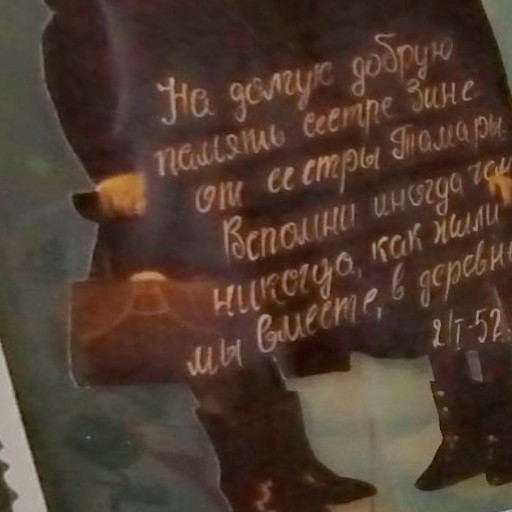 На долгую добрую
память сестре Зине
от сестры Тамары.
Вспомни иногда чем
никогда, как жили
мы вместе, в деревне
2/I-52.